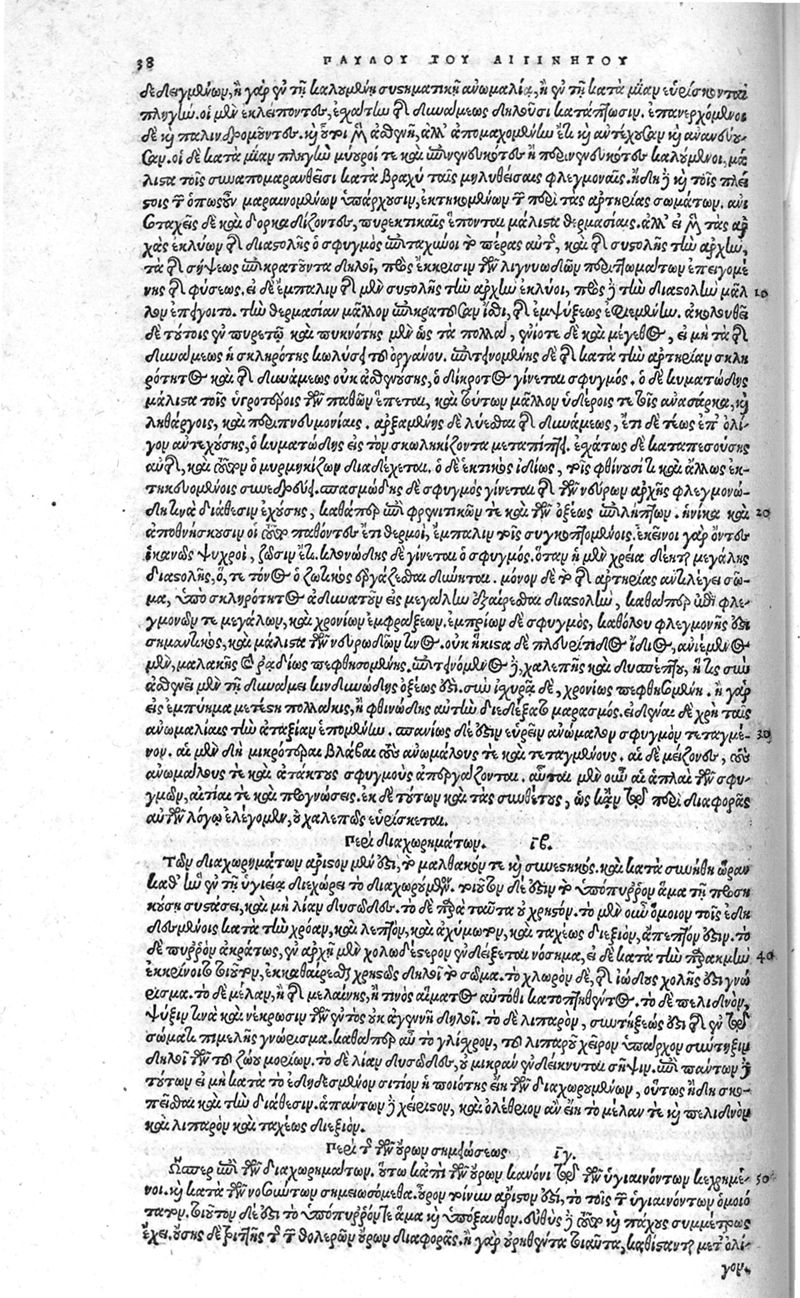 38 ΠΑΥΛΟΥ ΤΟΥ ΑΙΓΙΝΗΤΟΥ
πληγήν. οἱ μὲν ἐκλείποντες, ἐσχάτην τῆς δυνάμεως δηλοῦσι κατάπτωσιν. ἐπανερχόμενοι
δὲ καὶ παλινδρομοῦντες
σαν. οἱ δὲ κατὰ μίαν πληγὴν μύουροί τε καὶ καλούμενοι, μά
λιστα τοῖς συναπομαρανθεῖσι κατὰ βραχὺ ταῖς μὴ λυθείσαις φλεγμοναῖς. ἤδη καὶ τοῖς πλεί
στοις τῶν ὁπωσοῦν μαραινομένων ὑπάρχουσιν, ἐκτηκομένων τῶν περὶ τὰς ἀρτηρίας σωμάτων. ἀνι
σταχεῖς δὲ καὶ δορκαδίζοντες, πυρεκτικαῖς ἕπονται μάλιστα θερμασίαις. ἀλλ' εἰ μὲν τὰς ἀρ
χὰς ἐκλύων τῆς διαστολῆς ὁ σφυγμὸς ἐπιταχύνοι τὸ πέρας αὐτῆς, καὶ τῆς συστολῆς τὴν ἀρχήν,
τὰ τῆς σήψεως ἐπικρατοῦντα δηλοῖ, πρὸς ἔκκρισιν τῶν λιγνυωδῶν περιττωμάτων ἐπειγομέ
νης τῆς φύσεως. εἰ δὲ ἔμπαλιν τῆς μὲν συστολῆς τὴν ἀρχὴν ἐκλύοι, πρὸς δὲ τὴν διαστολὴν μᾶλ 10
λον ἐπείγοιτο. τὴν θερμασίαν μᾶλλον ἐπικρατοῦσαν ἴσθι, τῆς ἐμψύξεως ἐφιεμένην. ἀκολουθεῖ
δὲ τούτοις ἐν πυρετῷ καὶ πυκνότης μὲν ὡς τὰ πολλά, ἐνίοτε δὲ καὶ μέγεθος, εἰ μὴ τὰ τῆς
δυνάμεως ἢ σκληρότης κωλύσῃ τοῦ ὀργάνου. ἐπιτεινομένης δὲ τῆς κατὰ τὴν ἀρτηρίαν σκλη
ρότητος καὶ τῆς δυνάμεως οὐκ ἀσθενούσης, ὁ δίκροτος γίνεται σφυγμός. ὁ δὲ κυματώδης
μάλιστα τοῖς ὑγροτέροις τῶν παθῶν ἕπεται, καὶ τούτων μᾶλλον ὑδέροις τε τοῖς ἀνασάρκα, καὶ
ληθάργοις, καὶ περιπνευμονίαις. ἀρξαμένης δὲ λύεσθαι τῆς δυνάμεως, ἔτι δὲ τέως ἐπ' ὀλί
γον ἀντεχούσης, ὁ κυματώδης εἰς τὸν σκωληκίζοντα μεταπίπτει. ἐσχάτως δὲ καταπεσούσης
αὐτῆς, καὶ τοῦτον ὁ μυρμηκίζων διαδέχεται. ὁ δὲ ἑκτικὸς ἰδίως, τοῖς φθίνουσί τε καὶ ἄλλως ἐκ
τηκομένοις συνεδρεύει. σπασμώδης δὲ σφυγμὸς γίνεται τῆς τῶν νεύρων ἀρχῆς φλεγμονώ
δη τινὰ διάθεσιν ἐχούσης, καθάπερ ἐπὶ φρενιτικῶν τε καὶ τῶν ὀξέως ἐπιλήπτων. ἡνίκα καὶ 20
ἀποθνήσκουσιν οἱ οὕτω παθόντες ἔτι θερμοί, ἔμπαλιν τοῖς συγκοπτομένοις. ἐκεῖνοι γὰρ ὄντες
ἱκανῶς ψυχροί, ζῶσιν ἔτι. κλονώδης δὲ γίνεται ὁ σφυγμός. ὅταν ἡ μὲν χρεία δέηται μεγάλης
διαστολῆς, ὅ, τε τόνος ὁ ζωτικὸς ἐργάζεσθαι δύνηται. μόνον δὲ τὸ τῆς ἀρτηρίας ἀντιλέγει σῶ
μα, ὑπὸ σκληρότητος ἀδυνατοῦν εἰς μεγάλην ἐξαίρεσθαι διαστολήν, καθάπερ ἐπὶ φλε
γμονῶν τε μεγάλων, καὶ χρονίων ἐμφράξεων. ἐμπρίων δὲ σφυγμός, καθόλου φλεγμονῆς ἐστι
σημαντικός, καὶ μάλιστα τῶν νευρωδῶν τινος. οὐκ ἥκιστα δὲ πλευρίτιδος ἴδιος, ἀνιέμενος
μέν, μαλακῆς καὶ ῥᾳδίως πεφθησομένης. ἐπιτεινόμενος δέ, χαλεπῆς καὶ δυσπέπτου, ἥτις σὺν
ἀσθενεῖ μὲν τῇ δυνάμει κινδυνώδης ὀξέως ἐστί. σὺν ἰσχυρᾷ δέ, χρονίως πεφθησομένη. ἢ γὰρ
εἰς ἐμπύημα μετέστη πολλάκις, ἢ φθινώδης αὐτὴν διεδέξατο μαρασμός. εἰδέναι δὲ χρὴ ταῖς
ἀνωμαλίαις τὴν ἀταξίαν ἑπομένην. σπανίως δέ ἐστιν εὑρεῖν ἀνώμαλον σφυγμὸν τεταγμέ 30
νον. αἱ μὲν δὴ μικρότεραι βλάβαι τοὺς ἀνωμάλους τε καὶ τεταγμένους. αἱ δὲ μείζονες, τοὺς
ἀνωμάλους τε καὶ ἀτάκτους σφυγμοὺς ἀπεργάζονται. αὗται μὲν οὖν αἱ ἁπλαῖ τῶν σφυ
γμῶν, αἰτίαι τε καὶ προγνώσεις. ἐκ δὲ τούτων καὶ τὰς συνθέτους, ὡς κἀν τῷ περὶ διαφορᾶς
αὐτῶν λόγῳ ἐλέγομεν, οὐ χαλεπῶς εὑρίσκεται.
Περὶ διαχωρημάτων. ιβ.
Τῶν διαχωρημάτων ἄριστον μέν ἐστι, τὸ μαλθακόν τε καὶ συνεστηκός. καὶ κατὰ συνήθη ὥραν
καθ' ἣν ἐν τῇ ὑγιείᾳ διεχώρει τὸ διαχωρούμενον. τοιοῦτον δέ ἐστιν τὸ ὑπόπυρρον ἅμα τῇ προση
κούσῃ συστάσει, καὶ μὴ λίαν δυσῶδες. τὸ δὲ παρὰ ταῦτα οὐ χρηστόν. τὸ μὲν οὖν ὅμοιον τοῖς ἐδη
δεσμένοις κατὰ τὴν χρόαν, καὶ λεπτόν, καὶ ἀχύμωτον, καὶ ταχέως διεξιόν, ἄπεπτόν ἐστιν. τὸ
δὲ πυρρὸν ἀκράτως, ἐν ἀρχῇ μὲν χολωδέστερον ἐνδείξεται νόσημα, εἰ δὲ κατὰ τὴν παρακμὴν 40
ἐκκρίνοιτο τοιοῦτον, ἐκκαθαίρεσθαι χρηστῶς δηλοῖ τὸ σῶμα. τὸ χλωρὸν δέ, τῆς ἰώδους χολῆς ἐστι γνώ
ρισμα. τὸ δὲ μέλαν, ἢ τῆς μελαίνης, ἤ τινος αἵματος αὐτόθι κατοπτηθέντος. τὸ δὲ πελιδνόν,
ψύξιν τινὰ καὶ νέκρωσιν τῶν ἐντὸς οὐκ ἀγεννῆ δηλοῖ. τὸ δὲ λιπαρόν, συντήξεώς ἐστι τῆς ἐν τῷ
σώματι πιμελῆς γνώρισμα. καθάπερ αὖ τὸ γλίσχρον, τοῦ λιπαροῦ χεῖρον ὑπάρχον σύντηξιν
δηλοῖ τῶν τοῦ ζώου μορίων. τὸ δὲ λίαν δυσῶδες, οὐ μικρὰν ἐνδείκνυται σῆψιν. ἐπὶ πάντων δὲ
τούτων εἰ μὴ κατὰ τὸ ἐδηδεσμένον σιτίον ἡ ποιότης εἴη τῶν διαχωρουμένων, οὕτως ἤδη σκο
πεῖσθαι καὶ τὴν διάθεσιν. ἁπάντων δὲ χείριστον, καὶ ὀλέθριον ἂν εἴη τὸ μέλαν τε καὶ πελιδνὸν
καὶ λιπαρὸν καὶ ταχέως διεξιόν.
Περὶ τῆς τῶν οὔρων σημειώσεως ιγ.
Ὥσπερ ἐπὶ τῶν διαχωρημάτων. οὕτω κἀπὶ τῶν οὔρων κανόνι τῷ τῶν ὑγιαινόντων κεχρημέ 50
νοι. καὶ κατὰ τῶν νοσούντων σημειωσόμεθα. οὖρον τοίνυν ἄριστόν ἐστι, τὸ τοῖς τῶν ὑγιαινόντων ὁμοιό
τατον. τοιοῦτον δέ ἐστι τὸ ὑπόπυρρόν τε ἅμα καὶ ὑπόξανθον. εὐθὺς δὲ τοῦτο καὶ πάχος συμμέτρως
ἔχει. οὔσης δὲ τριττῆς τῆς τῶν θολερῶν οὔρων διαφορᾶς. ἢ γὰρ οὐρηθέντα τοιαῦτα, καθίσταντ μετ' ὀλί
γον.